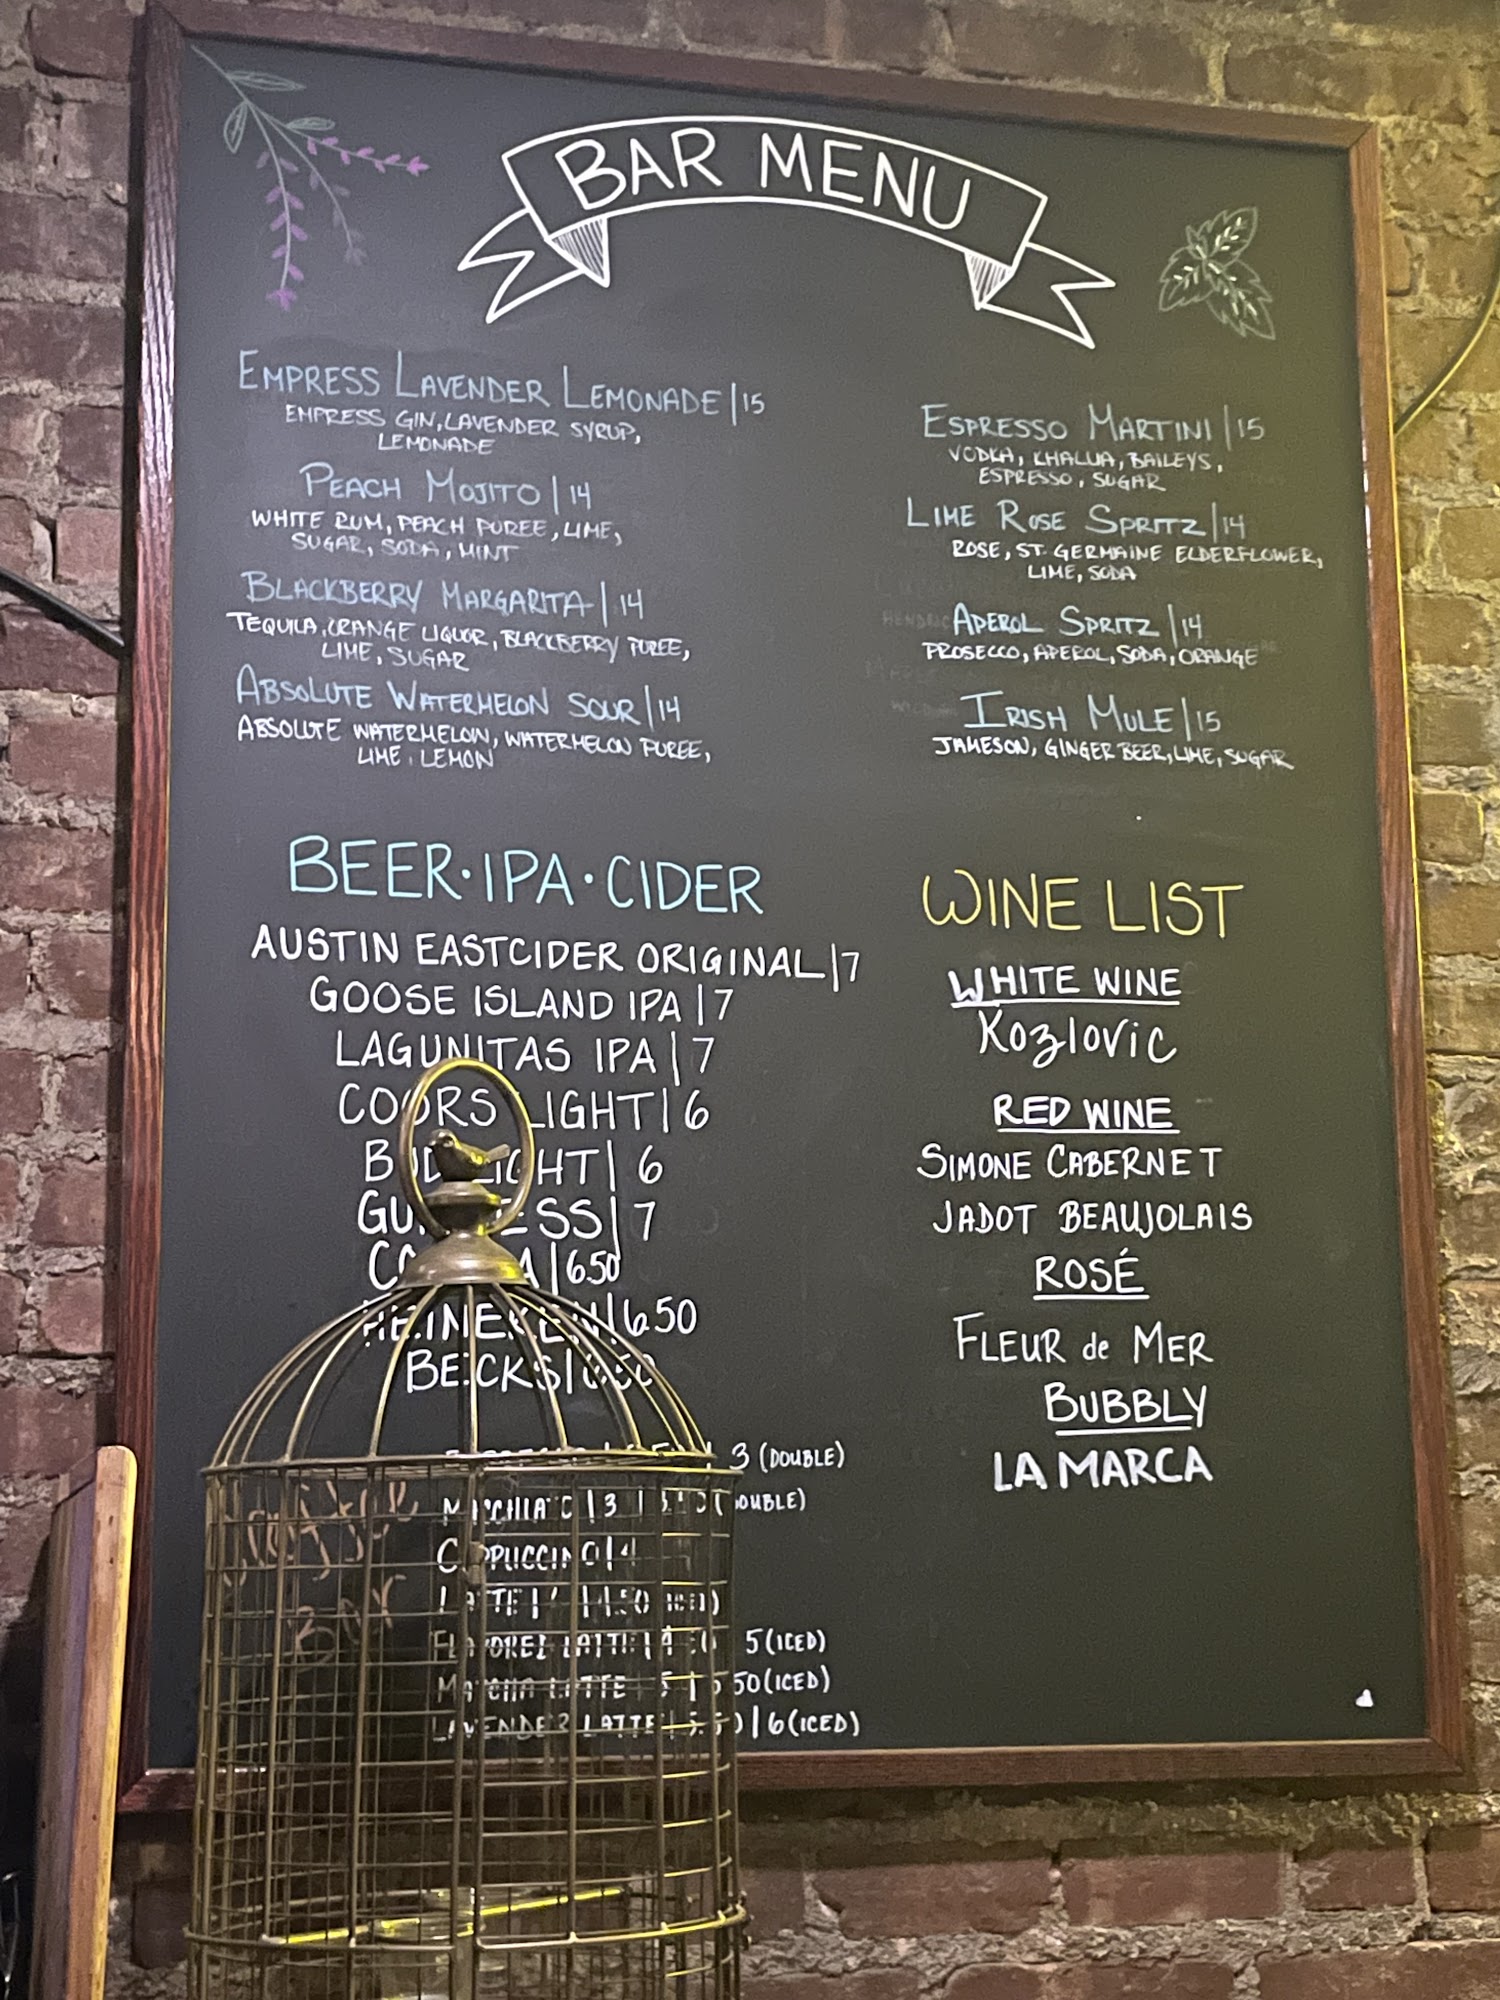 BAR MENU
EMPRESS LAVENDER LEMONADE|15
EMPRESS GIN, LAVENDER SYRUP,
LEMONADE
PEACH MOJITO|14
WHITE RUM, PEACH PUREE, LIME,
SUGAR, SODA, MINT
BLACKBERRY MARGARITA|14
TEQUILA, ORANGE LIQUOR, BLACKBERRY PUREE,
LIME, SUGAR
ABSOLUTE WATERMELON SOUR|14
ABSOLUTE WATERMELON, WATERMELON PUREE,
LIME, LEMON
ESPRESSO MARTINI|15
VODKA, KHALUA, BAILEYS,
ESPRESSO, SUGAR
LIME ROSE SPRITZ|14
ROSE, ST. GERMAINE ELDERFLOWER,
LIME, SODA
APEROL SPRITZ|14
PROSECCO, APEROL, SODA, ORANGE
IRISH MULE|15
JAMESON, GINGER BEER, LIME, SUGAR
BEER·IPA·CIDER
AUSTIN EASTCIDER ORIGINAL|7
GOOSE ISLAND IPA|7
LAGUNITAS IPA|7
COORS LIGHT|6
BUD LIGHT|6
GUINNESS|7
CORONA|6.50
HEINEKEN|6.50
BECKS|6.50
3 (DOUBLE)
MACCHIATO|3 | (DOUBLE)
CAPPUCCINO|4
LATTE | 4.50 (ICED)
FLAVORED LATTE | 5 (ICED)
MATCHA LATTE 5 | 5.50 (ICED)
LAVENDER LATTE | 5.50 | 6 (ICED)
WINE LIST
WHITE WINE
Kozlovic
RED WINE
SIMONE CABERNET
JADOT BEAUJOLAIS
ROSÉ
FLEUR de MER
BUBBLY
LA MARCA